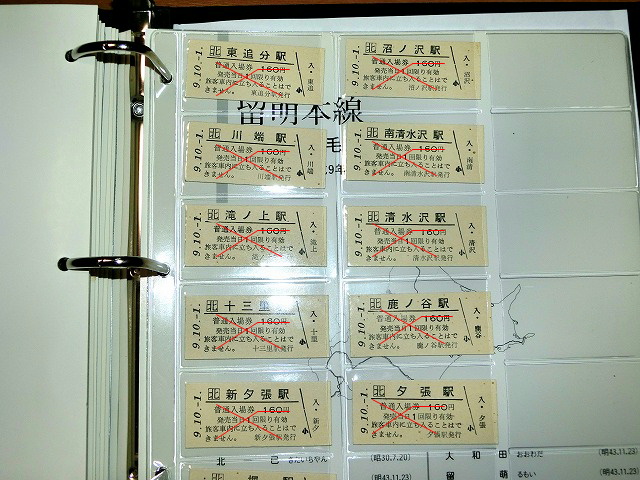 北 東追分駅
普通入場券 160円
発売当日1回限り有効
旅客車内に立ち入ることはで
きません。 東追分駅発行
9.10.-1.
入・東追
北 沼ノ沢駅
普通入場券 160円
発売当日1回限り有効
旅客車内に立ち入ることはで
きません。 沼ノ沢駅発行
9.10.-1.
入・沼沢
留明本線
毛
北 川端駅
普通入場券 160円
発売当日1回限り有効
旅客車内に立ち入ることはで
きません。 川端駅発行
9.10.-1.
入・川端
北 南清水沢駅
普通入場券 160円
発売当日1回限り有効
旅客車内に立ち入ることはで
きません。 南清水沢駅発行
9.10.-1.
入・南清
9年
北 滝ノ上駅
普通入場券 160円
発売当日1回限り有効
旅客車内に立ち入ることはで
きません。
9.10.-1.
入・滝上
北 清水沢駅
普通入場券 160円
発売当日1回限り有効
旅客車内に立ち入ることはで
きません。 清水沢駅発行
9.10.-1.
入・清沢
北 十三
普通入場券 160円
発売当日1回限り有効
旅客車内に立ち入ることはで
きません。 十三里駅発行
9.10.-1.
入・十里
北 鹿ノ谷駅
普通入場券 160円
発売当日1回限り有効
旅客車内に立ち入ることはで
きません。 鹿ノ谷駅発行
9.10.-1.
入・鹿谷
北 新夕張駅
普通入場券 160円
発売当日1回限り有効
旅客車内に立ち入ることはで
きません。 新夕張駅発行
9.10.-1.
入・新夕
北 夕張駅
普通入場券 160円
発売当日1回限り有効
旅客車内に立ち入ることはで
きません。 夕張駅発行
9.10.-1.
入・夕張
北 きたいちやん (昭30.7.20) 大和田 おおわだ (明43.11.23)
(明43.11.23) 留萌 るもい (明43.11.23)